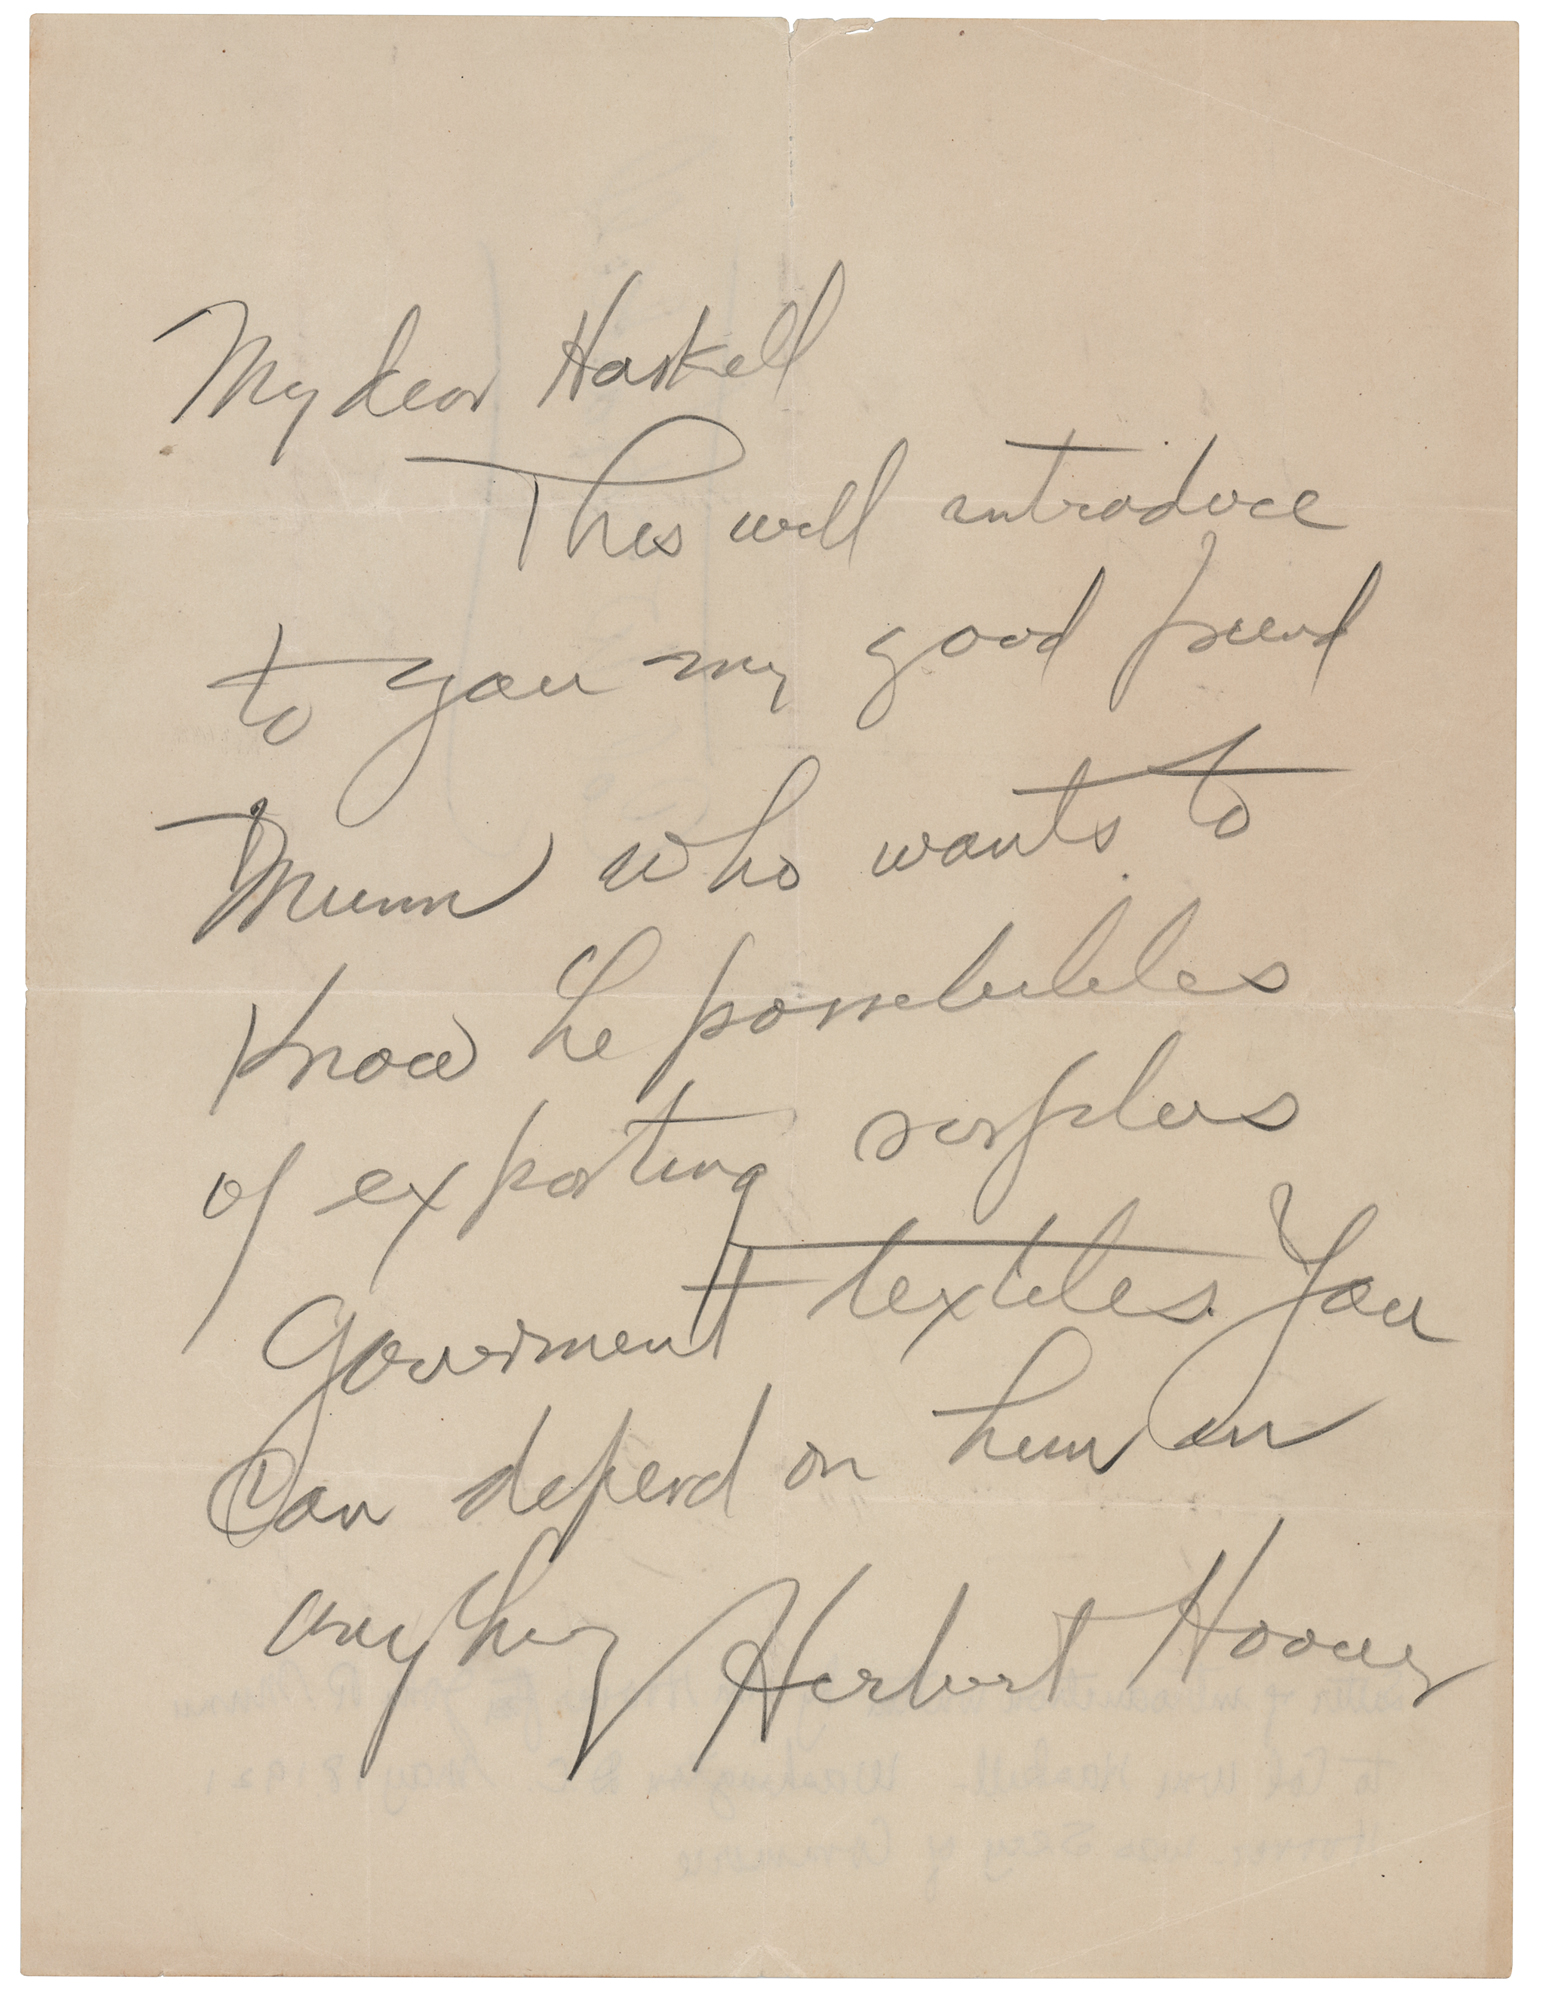 My dear Haskell
This will introduce
to you my good friend
Munn who wants to
Know he possibilities
of exporting surplus
Government textiles. You
Can depend on him in
anything
Herbert Hoover
to Col Wm Haskell Washington D.C. May 8 1921
Hoover was Secy of Commerce